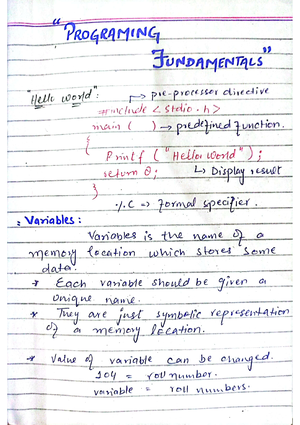 "PROGRAMING
FUNDAMENTALS"
"Hello world": → pre-processor directive
#include < Stdio . h>
main ( ) → predefined function.
{
Printf ("Hello world") ;
return 0; ↳ Display result
}
%.C => formal specifier.
: Variables :
Variables is the name of a
memory location which stores some
data.
* Each variable should be given a
unique name.
* They are just symbolic representation
of a memory location.
* Value of variable can be changed.
104 = roll number.
variable = roll numbers.